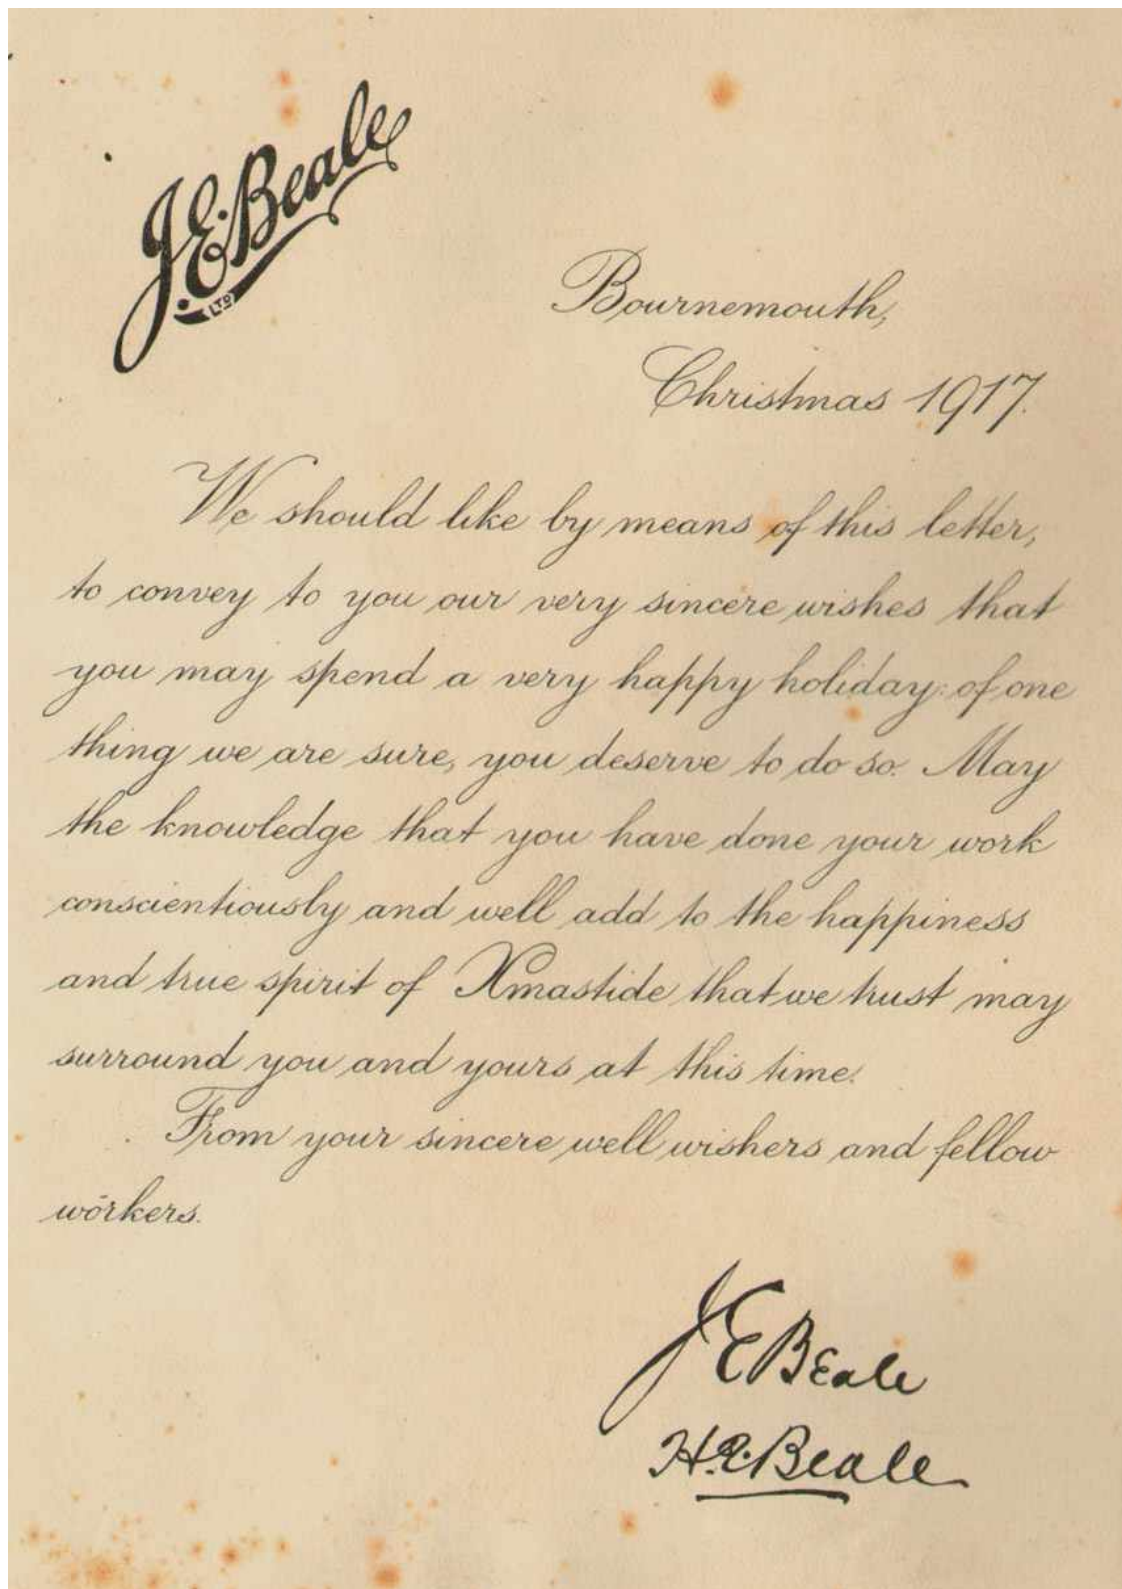 J.E. Beale
LTD
Bournemouth,
Christmas 1917.
We should like by means of this letter,
to convey to you our very sincere wishes that
you may spend a very happy holiday: of one
thing we are sure, you deserve to do so. May
the knowledge that you have done your work
conscientiously and well add to the happiness
and true spirit of Xmastide that we trust may
surround you and yours at this time.
From your sincere well wishers and fellow
workers.
J E Beale
H.E. Beale